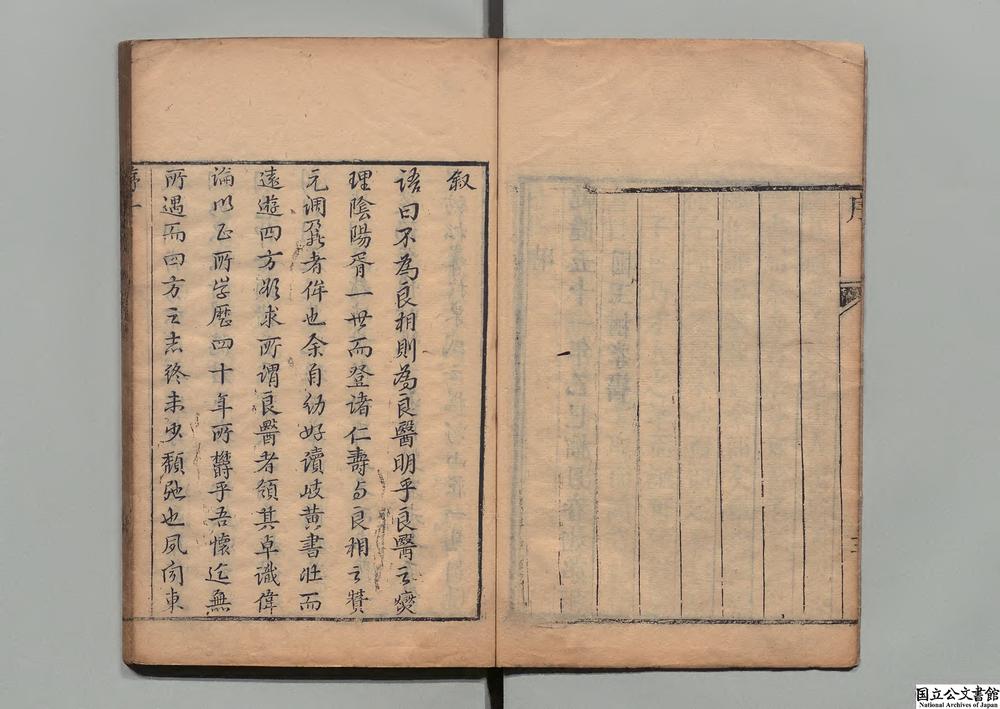 序
叙
語曰不為良相則為良醫明乎良醫之燮
理陰陽胥一世而登諸仁壽与良相之賛
元調鼐者侔也余自幼好讀岐黄書壯而
遠遊四方欲求所謂良醫者領其卓識偉
論以正所学歷四十年所欝乎吾懷迄無
所遇而四方之志終未少頽弛也夙向東
序 一
国立公文書館
National Archives of Japan